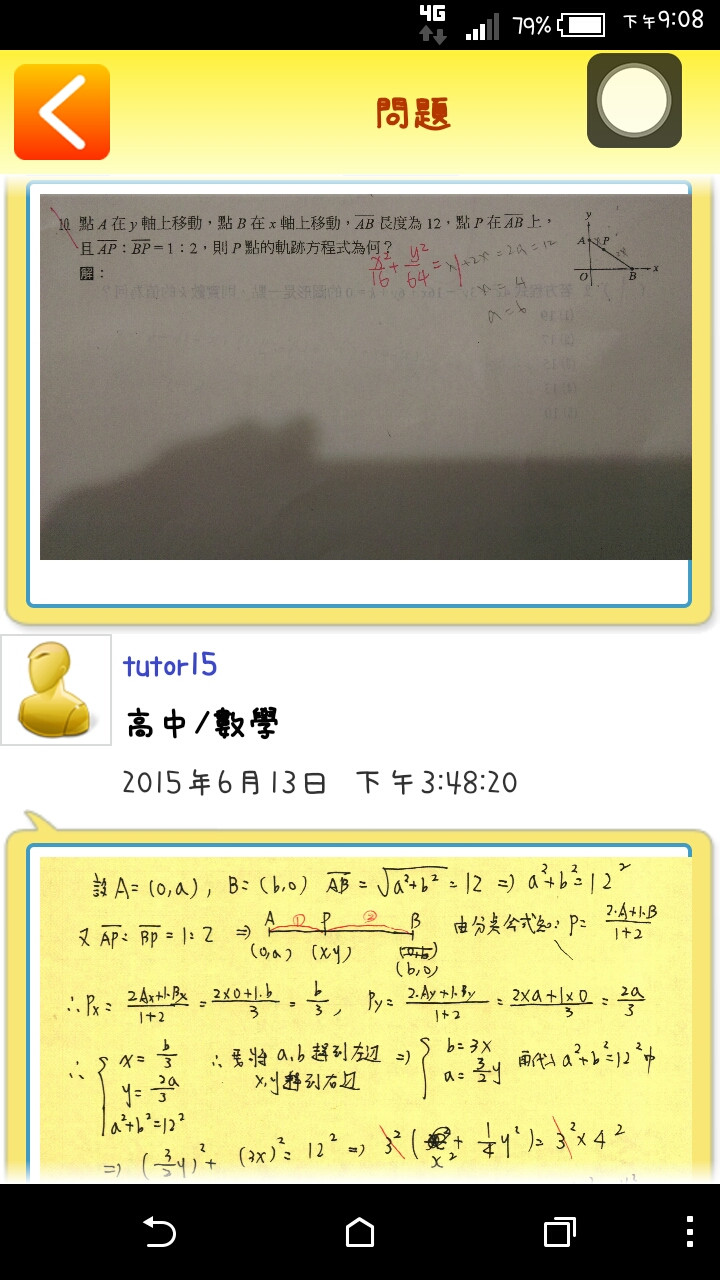 4G 79% 下午9:08
問題
10. 點 A 在 y 軸上移動，點 B 在 x 軸上移動，AB 長度為 12，點 P 在 AB 上，
且 AP：BP = 1：2，則 P 點的軌跡方程式為何？
解：
x²/16 + y²/64 = 1
x+2x = 2a = 12
x = 4
a = 6
y
A
x
P
2x
O
B
x
tutor15
高中/數學
2015年6月13日 下午3:48:20
設 A=(0,a), B=(b,0) AB = √(a²+b²) = 12 => a²+b²=12²
又 AP:BP = 1:2 => A ① P ② B 由分點公式知: P= (2·A+1·B)/(1+2)
(0,a) (x,y)
(b,0)
∴Px = (2Ax+1·Bx)/(1+2) = (2×0+1·b)/3 = b/3, Py = (2·Ay+1·By)/(1+2) = (2×a+1×0)/3 = 2a/3
∴ { x = b/3 ∴要將 a,b 移到左边 => { b=3x 再代入 a²+b²=12² 中
y = 2a/3 x,y移到右边 a=3/2 y
a²+b²=12²
=> (3/2 y)² + (3x)² = 12² => 3² (x² + 1/4 y²) = 3²×4²